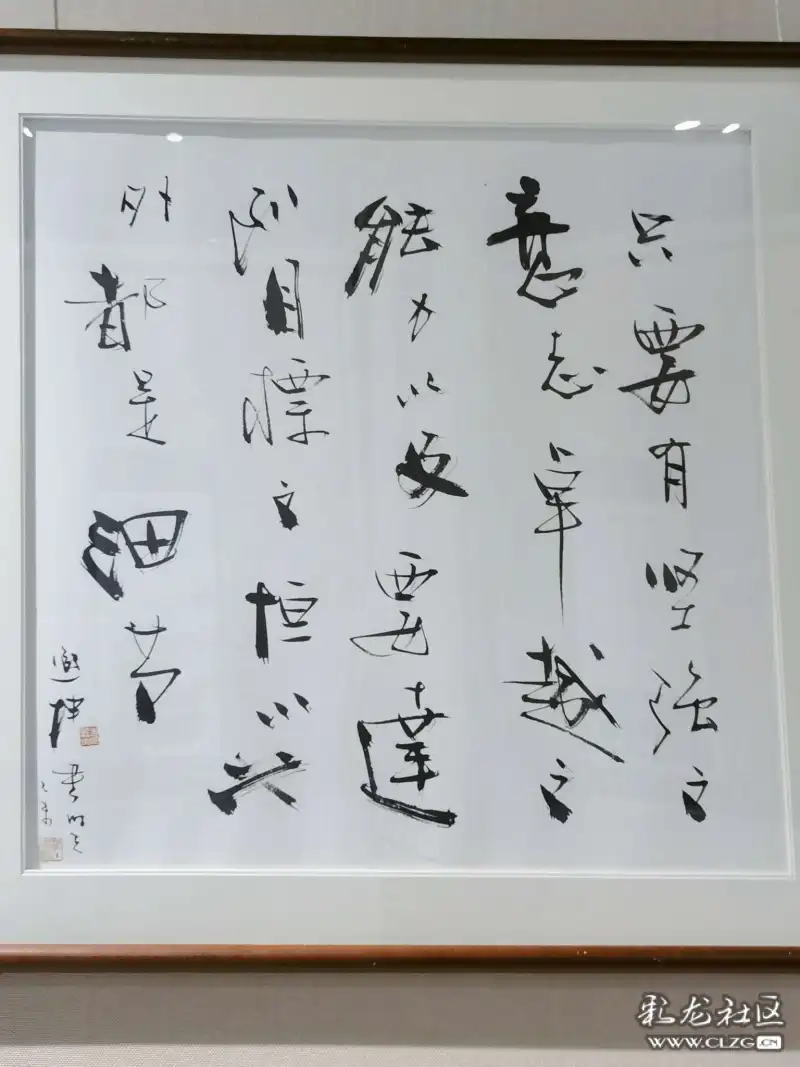 只要有坚强之
意志卓越之
能力以及要達
到目標之恒心此
外都是细节
彩龙社区
WWW.CLZG.CN